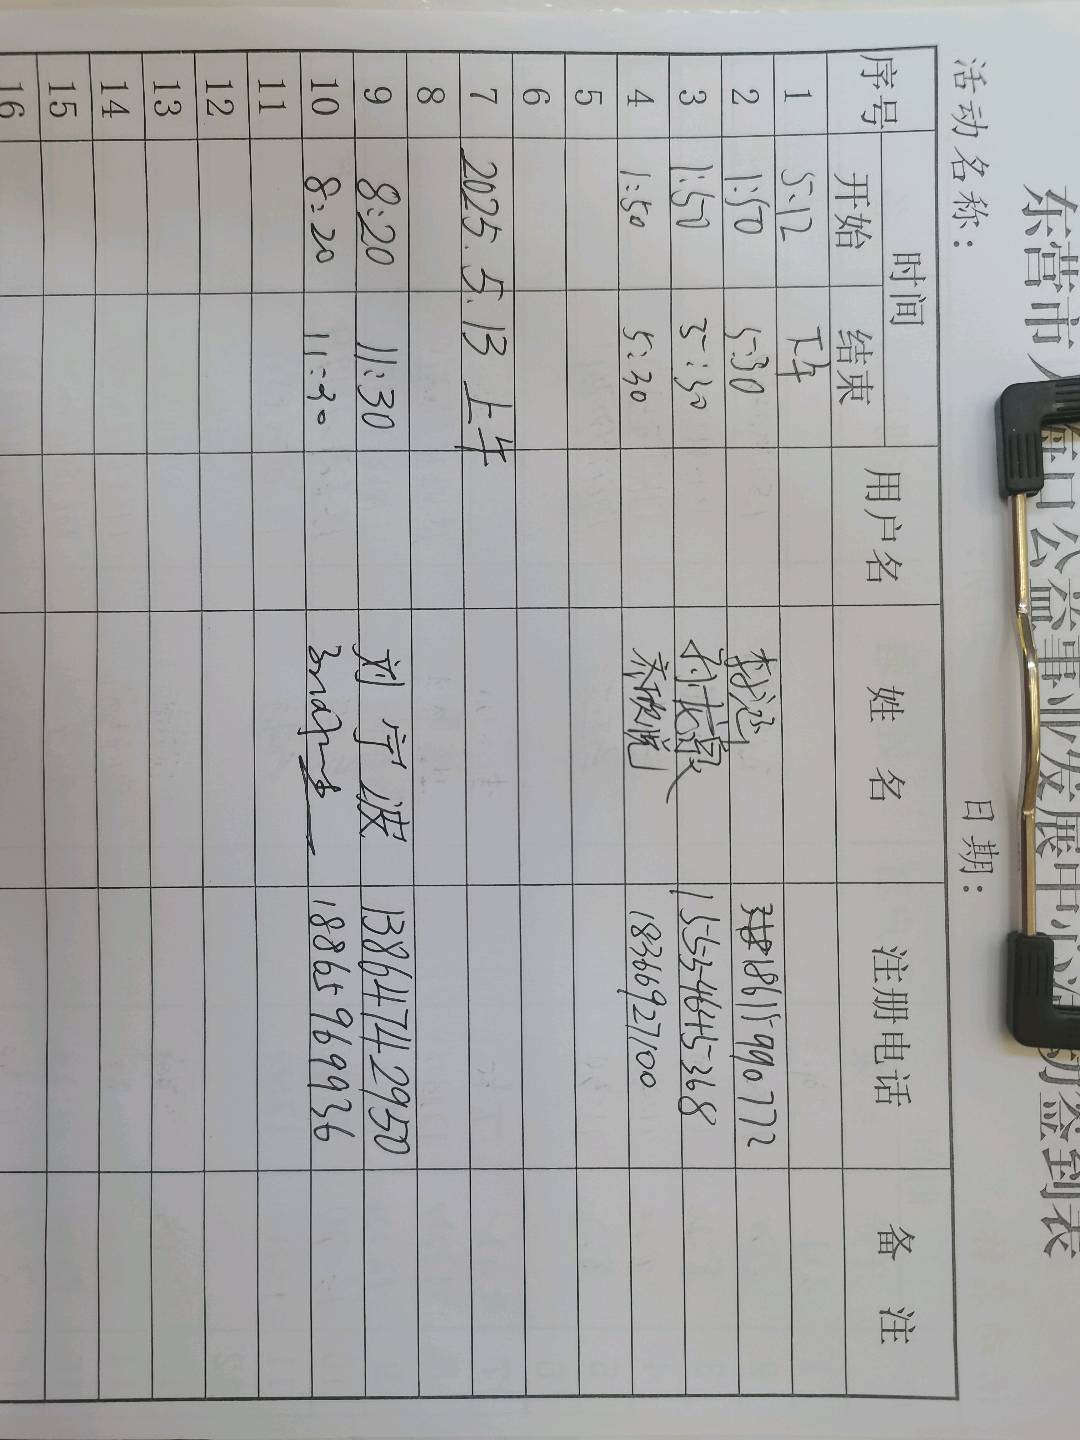 东营市人 海口公益事业发展中心活动签到表
活动名称： 日期：
序号 时间 用户名 姓名 注册电话 备注
开始 结束
1 5.12 下午
2 1:50 5:30 18615990772
3 1:50 5:30 15554645368
4 1:50 5:30 18366927100
5
6
7 2025.5.13 上午
8
9 8:20 11:30 刘宁波 13864742950
10 8:20 11:30 18865969936
11
12
13
14
15
16